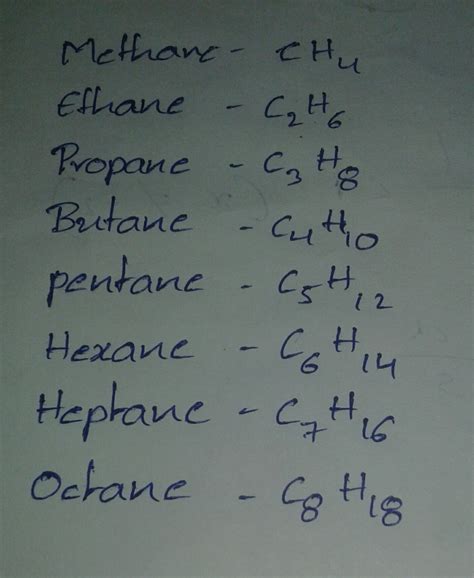 Methane - CH₄
Ethane - C₂H₆
Propane - C₃H₈
Butane - C₄H₁₀
pentane - C₅H₁₂
Hexane - C₆H₁₄
Heptane - C₇H₁₆
Octane - C₈H₁₈